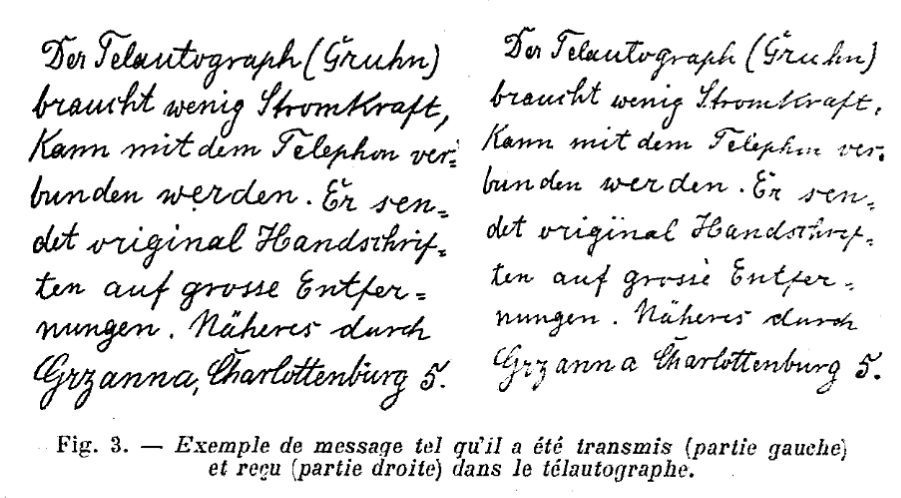 Der Telautograph (Gruhn)
braucht wenig Stromkraft,
Kann mit dem Telephon ver=
bunden werden. Er sen=
det original Handschrif=
ten auf grosse Entfer=
nungen. Näheres durch
Grzanna, Charlottenburg 5.
Der Telautograph (Gruhn)
braucht wenig Stromkraft,
Kann mit dem Telephon ver=
bunden werden. Er sen=
det original Handschrif=
ten auf grosse Entfer=
nungen. Näheres durch
Grzanna Charlottenburg 5.
Fig. 3. — Exemple de message tel qu'il a été transmis (partie gauche)
et reçu (partie droite) dans le télautographe.